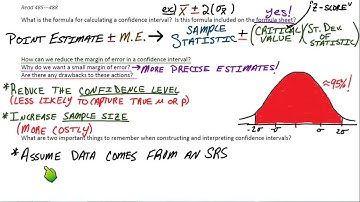 Read 485–488
ex) x̄ ± 2(σx̄)
"z-SCORE"
What is the formula for calculating a confidence interval? Is this formula included on the formula sheet?
yes!
POINT ESTIMATE ± M.E. → SAMPLE STATISTIC ± (CRITICAL VALUE)(ST. DEV. OF STATISTIC)
How can we reduce the margin of error in a confidence interval?
Why do we want a small margin of error? → MORE PRECISE ESTIMATES!
Are there any drawbacks to these actions?
* REDUCE THE CONFIDENCE LEVEL
(LESS LIKELY TO CAPTURE TRUE μ OR p)
≈95%!
* INCREASE SAMPLE SIZE
(MORE COSTLY)
-2σ -σ σ 2σ
What are two important things to remember when constructing and interpreting confidence intervals?
* ASSUME DATA COMES FROM AN SRS